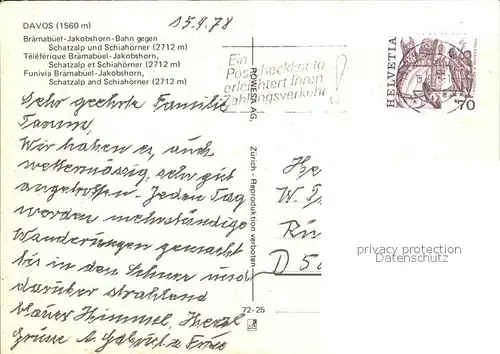 DAVOS (1560 m)
15.9.78
Brämabüel-Jakobshorn-Bahn gegen
Schatzalp und Schiahörner (2712 m)
Téléférique Brämabüel-Jakobshorn,
Schatzalp et Schiahörner (2712 m)
Funivia Brämabüel-Jakobshorn,
Schatzalp and Schiahörner (2712 m)
Ein
Postcheckkonto
erleichtert Ihren
Zahlungsverkehr!
HELVETIA
70
ROWESA AG,
Zürich - Reproduktion verboten
Sehr geehrte Familie
Wir haben es, auch
wettermässig, sehr gut
angetroffen. Jeden Tag
werden mehrstündige
Wanderungen gemacht
bis in den Schnee und
darüber strahlend
blauer Himmel, Herzl.
Grüsse
He
W.
D 5
privacy protection
DeltaComM
72-25